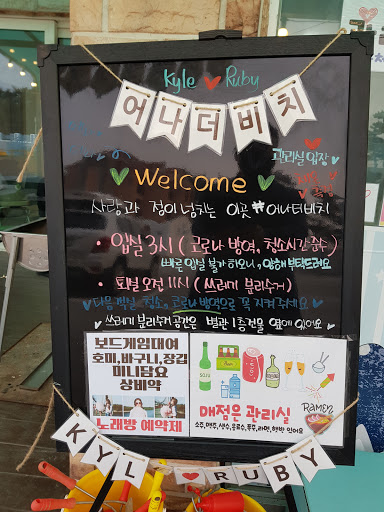 Kyle ♥ Ruby
어나더비치
관리실 입장
Welcome
사랑과 정이 넘치는 이곳 #어나더비치
• 입실 3시 ( 코로나 방역, 청소시간 준수 )
빠른 입실 불가하오니, 양해 부탁드려요
• 퇴실 오전 11시 ( 쓰레기 분리수거 )
다음 객실 청소, 코로나 방역으로 꼭 지켜주세요
쓰레기 분리수거 공간은 별관 1층 건물 옆에 있어요
보드게임대여
호미,바구니,장갑
미니담요
상비약
노래방 예약제
매점은 관리실
소주,맥주,생수,음료수,폭죽,라면,햇반 있어요
RAMEN
KYL
♥ RUBY